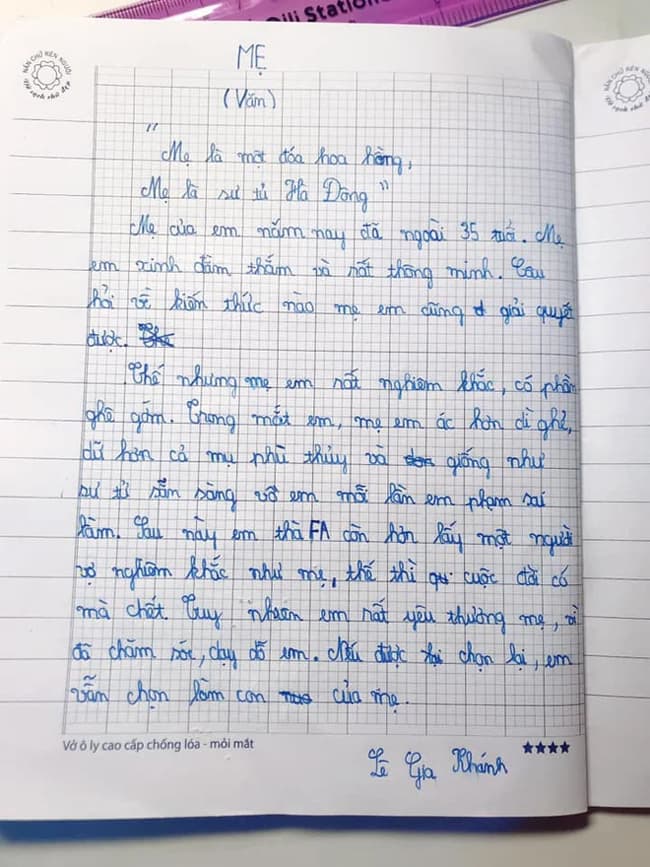 Oili Station
NẮN CHỮ RÈN NGƯỜI
Vở sạch chữ đẹp
MẸ
(Văn)
"
Mẹ là một đóa hoa hồng,
Mẹ là sư tử Hà Đông"
Mẹ của em nắm nay đã ngoài 35 tuổi. Mẹ
em xinh đằm thắm và rất thông minh. Câu
hỏi về kiến thức nào mẹ em cũng giải quyết
được.
Thế nhưng mẹ em rất nghiêm khắc, có phần
ghê gớm. Trong mắt em, mẹ em ác hơn dì ghẻ,
dữ hơn cả mụ phù thủy và giống như
sư tử sẵn sàng vồ em mỗi lần em phạm sai
lầm. Sau này em thà FA còn hơn lấy một người
vợ nghiêm khắc như mẹ, thế thì cuộc đời có
mà chết. Tuy nhiên em rất yêu thương mẹ, vì
đã chăm sóc, dạy dỗ em. Nếu được chọn lại, em
vẫn chọn làm con của mẹ.
Vở ô ly cao cấp chống lóa - mỏi mắt
★★★★
Lê Gia Khánh